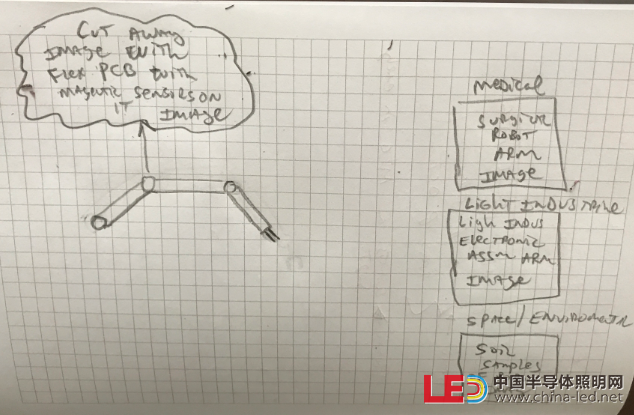 CUT AWAY
IMAGE WITH
FLEX PCB WITH
MAGETIC SENSORS ON
IT IMAGE
MEDICAL
ROBOT
ARM
IMAGE
LIGHT INDUSTRIAL
LIGH INDUS
ELECTRONIC
ASSM ARM
IMAGE
SPACE/ENVIROMENTAL
SOIL
SAMPLES
LED 中国半导体照明网
www.china-led.net